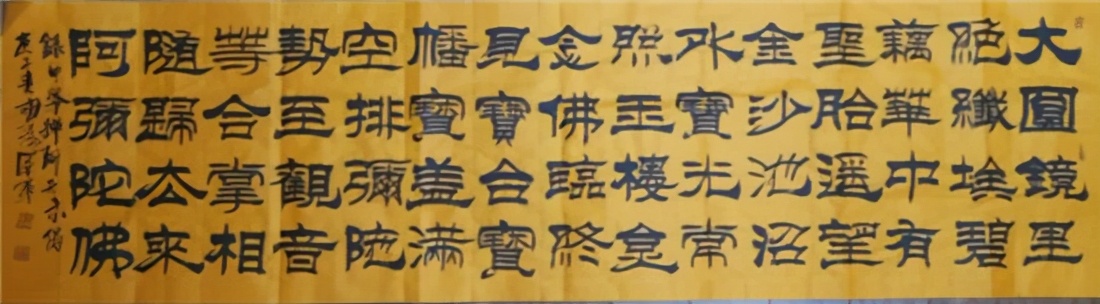 大圓鏡里
絕纖埃碧
藕華中有
聖胎遥望
金沙池沼
外寶光常
照玉樓臺
念佛臨終
見寶台寶
幡寶盖滿
空排彌陀
勢至觀音
等合掌相
随歸去來
阿彌陀佛
錄中峯禅師
庚子春